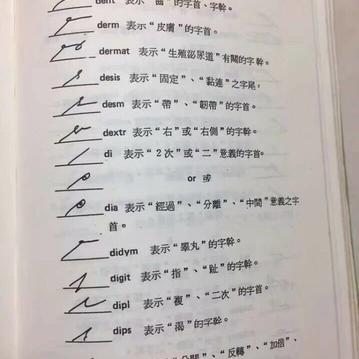 dent 表示“齒”的字首、字幹。
derm 表示“皮膚”的字首。
dermat 表示“生殖泌尿道”有關的字幹。
desis 表示“固定”、“黏連”之字尾。
desm 表示“帶”、“韌帶”的字首。
dextr 表示“右”或“右側”的字幹。
di 表示“2次”或“二”意義的字首。
or 或
dia 表示“經過”、“分離”、“中間”意義之字
首。
didym 表示“睪丸”的字幹。
digit 表示“指”、“趾”的字幹。
dipl 表示“複”、“二次”的字首。
dips 表示“渴”的字幹。
“反轉”、“加倍”、